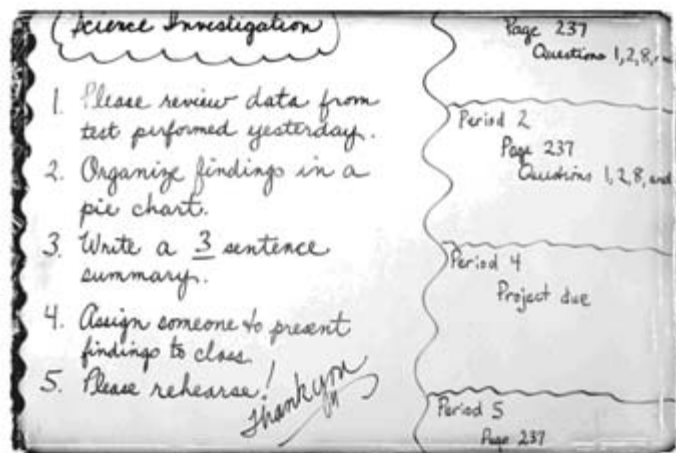 Science Investigation
1. Please review data from
test performed yesterday.
2. Organize findings in a
pie chart.
3. Write a 3 sentence
summary.
4. Assign someone to present
findings to class.
5. Please rehearse!
Thank you
Page 237
Questions 1, 2, 8,
Period 2
Page 237
Questions 1, 2, 8, and
Period 4
Project due
Period 5
Page 237